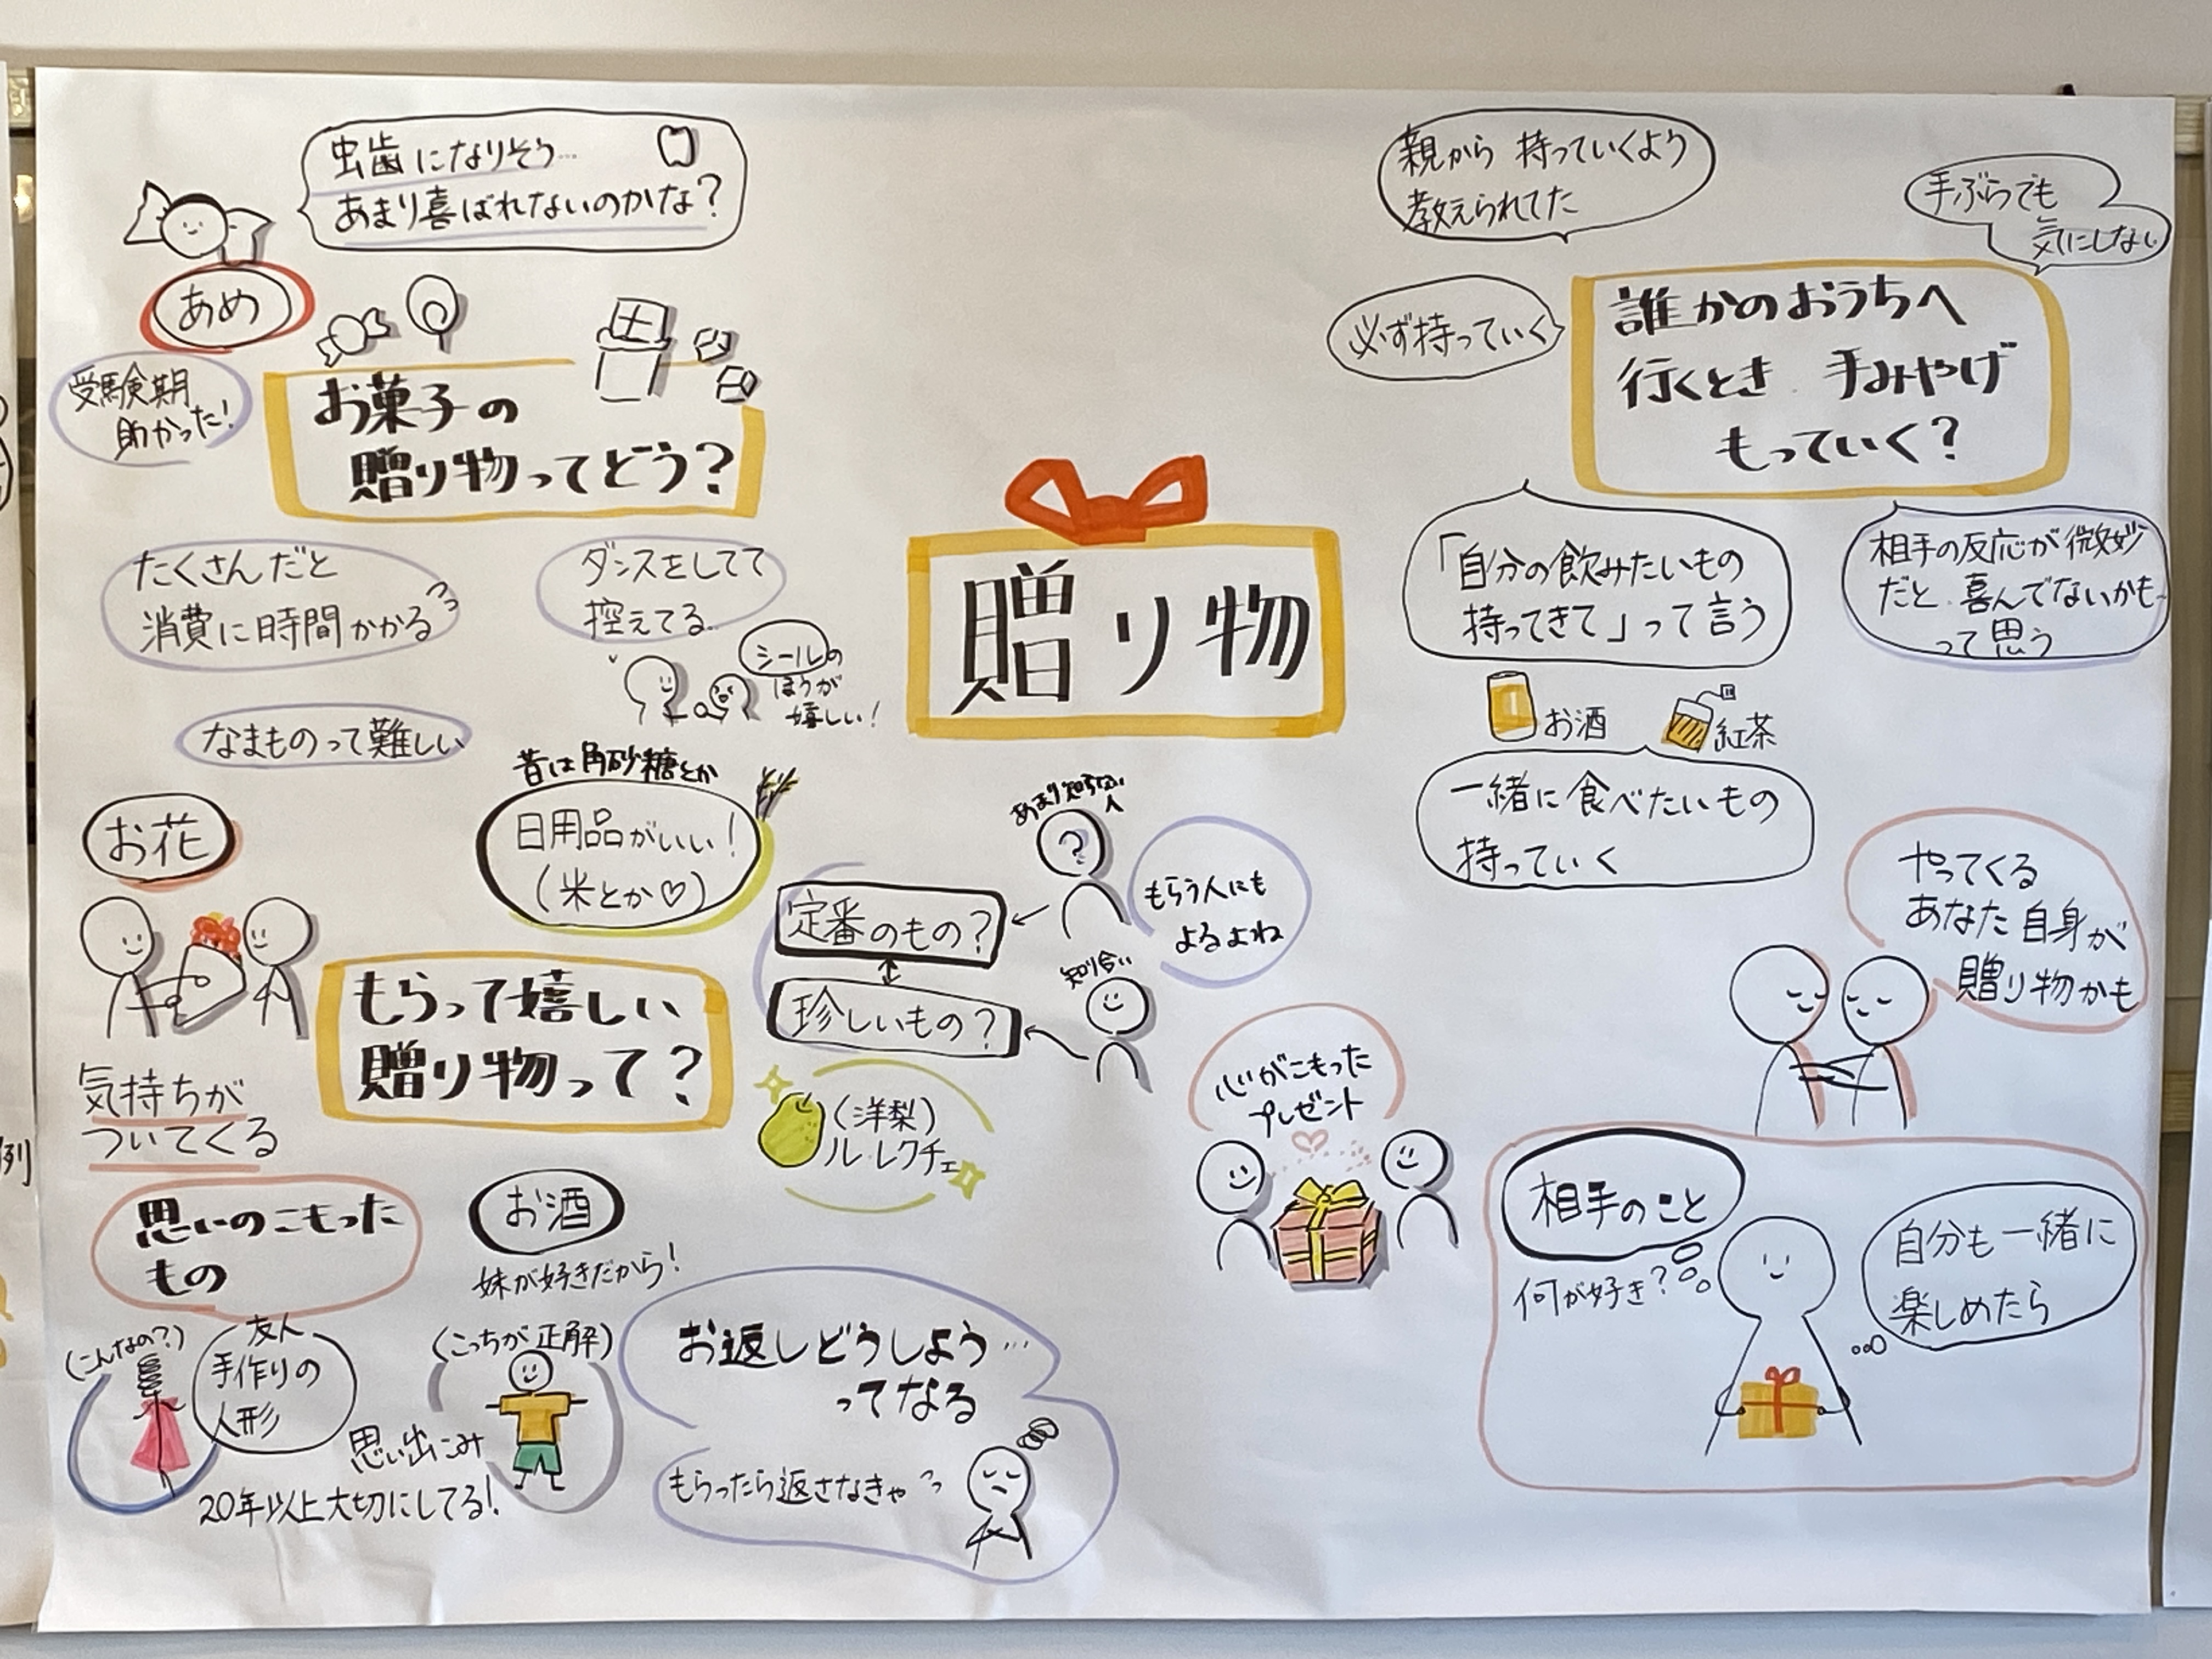 贈り物
虫歯になりそう…
あまり喜ばれないのかな？
あめ
受験期
助かった！
お菓子の
贈り物ってどう？
たくさんだと
消費に時間かかる
ダンスをしてて
控えてる…
シールの
ほうが
嬉しい！
なまものって難しい
昔は角砂糖とか
日用品がいい！
（米とか♡）
お花
もらって嬉しい
贈り物って？
気持ちが
ついてくる
思いのこもった
もの
お酒
妹が好きだから！
（こんなの？）
友人
手作りの
人形
（こっちが正解）
思い出こみ
20年以上大切にしてる！
あまり知らない
人
？
定番のもの？
もらう人にも
よるよね
知り合い
珍しいもの？
（洋梨）
ル・レクチェ
お返しどうしよう…
ってなる
もらったら返さなきゃ
心がこもった
プレゼント
親から 持っていくよう
教えられてた
手ぶらでも
気にしない
必ず持っていく
誰かのおうちへ
行くとき 手みやげ
もっていく？
「自分の飲みたいもの
持ってきて」って言う
相手の反応が微妙
だと、喜んでないかも〜
って思う
お酒
紅茶
一緒に食べたいもの
持っていく
やってくる
あなた自身が
贈り物かも
相手のこと
何が好き？
自分も一緒に
楽しめたら
例